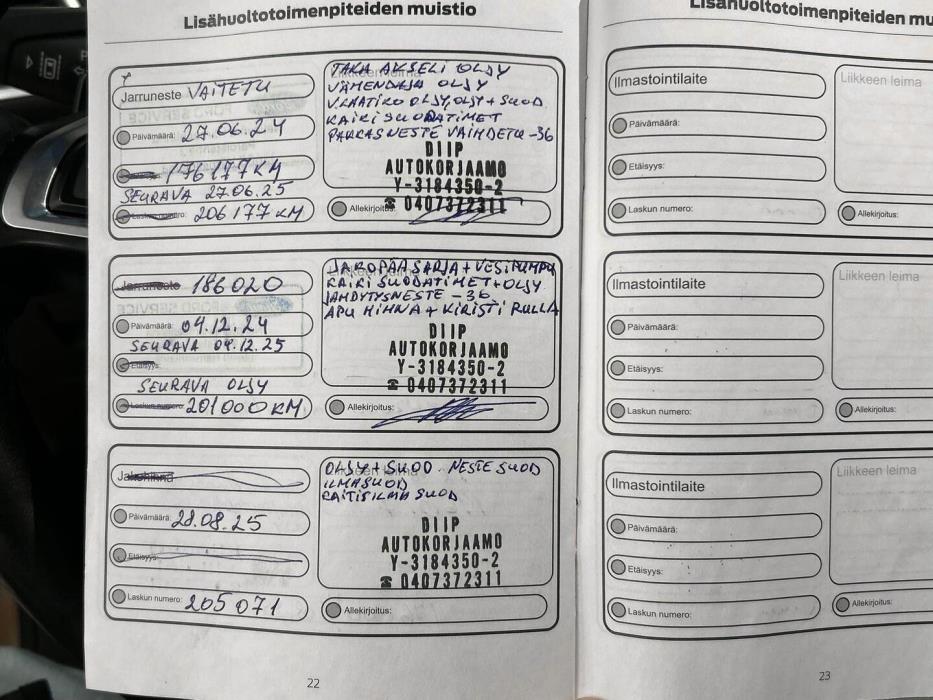 Lisähuoltotoimenpiteiden muistio
Jarruneste VAITETU
Päivämäärä: 27.06.24
176177 KM
SEURAVA 27.06.25
206177 KM
TAKA AKSELI OLJY
VÄHENDAJA OLJY
V.MATIKO OLJY, OLJY + SUOD.
KAIKI SUODATIMET
PAKKASNESTE VAIHDETU -36
DIIP
AUTOKORJAAMO
Y-3184350-2
☎ 0407372311
Allekirjoitus:
Jarruneste 186020
Päivämäärä: 04.12.24
SEURAVA 04.12.25
Etäisyys:
SEURAVA OLJY
Laskun numero: 201000 KM
JAKOPÄÄ SARJA + VESIPUMPU
KAIKI SUODATIMET + OLJY
JÄHDYTYSNESTE -36
APU HIHNA + KIRISTI RULLA
DIIP
AUTOKORJAAMO
Y-3184350-2
☎ 0407372311
Allekirjoitus:
Jakohihna
Päivämäärä: 28.08.25
Etäisyys:
Laskun numero: 205071
OLJY + SUOD. NESTE SUOD
ILMASUOD
RAITISILMA SUOD
DIIP
AUTOKORJAAMO
Y-3184350-2
☎ 0407372311
Allekirjoitus:
22
Lisähuoltotoimenpiteiden mu
Ilmastointilaite
Päivämäärä:
Etäisyys:
Laskun numero:
Liikkeen leima
Allekirjoitus:
Ilmastointilaite
Päivämäärä:
Etäisyys:
Laskun numero:
Liikkeen leima
Allekirjoitus:
Ilmastointilaite
Päivämäärä:
Etäisyys:
Laskun numero:
Liikkeen leima
Allekirjoitus:
23